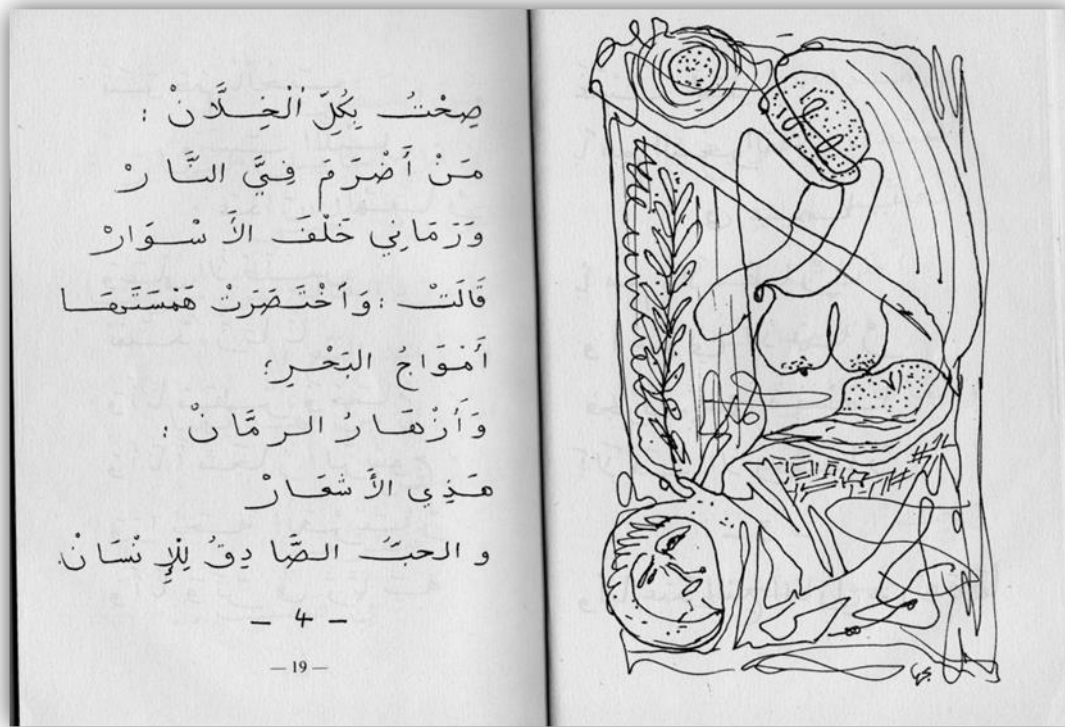 صِحْتُ بِكُلِّ ٱلْخِلَّانْ :
مَنْ أَضْرَمَ فِيَّ النَّارْ
وَرَمَانِي خَلْفَ الأَسْوَارْ
قَالَتْ : وَٱخْتَصَرتْ هَمسَتَهَا
أَمْوَاجُ البَحْرِ ؛
وَأَزْهَارُ الرمَّانْ :
هَذِي الأَشعَارْ
و الحبّ الصَّادِقُ لِلْإِنْسَانْ.
– 4 –
— 19 —